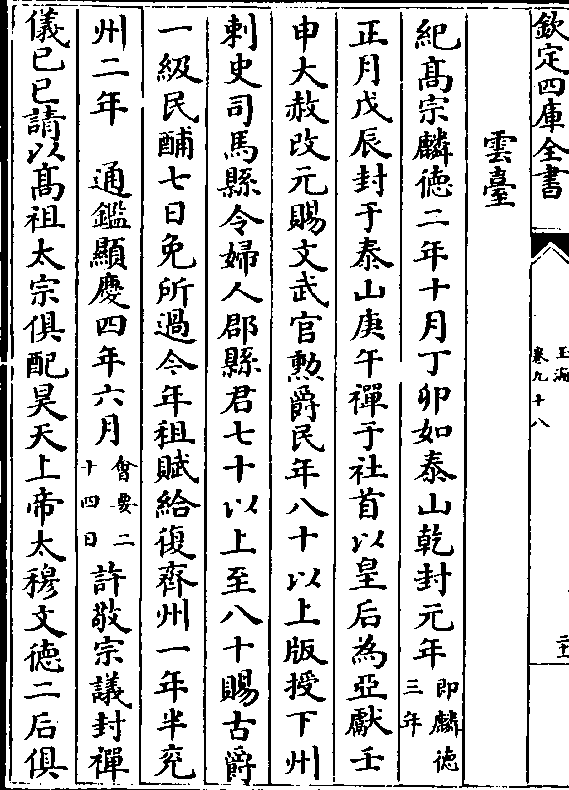 欽定四庫全書
玉海
卷九十八
雲臺
紀髙宗麟德二年十月丁卯如泰山乾封元年即麟德三年
正月戊辰封于泰山庚午禪于社首以皇后為亞獻壬
申大赦改元賜文武官勲爵民年八十以上版授下州
刺史司馬縣令婦人郡縣君七十以上至八十賜古爵
一級民酺七日免所過今年租賦給復齊州一年半兖
州二年　通鑑顯慶四年六月㑹要二十四日許敬宗議封禪
儀已已請以髙祖太宗俱配昊天上帝太穆文德二后俱